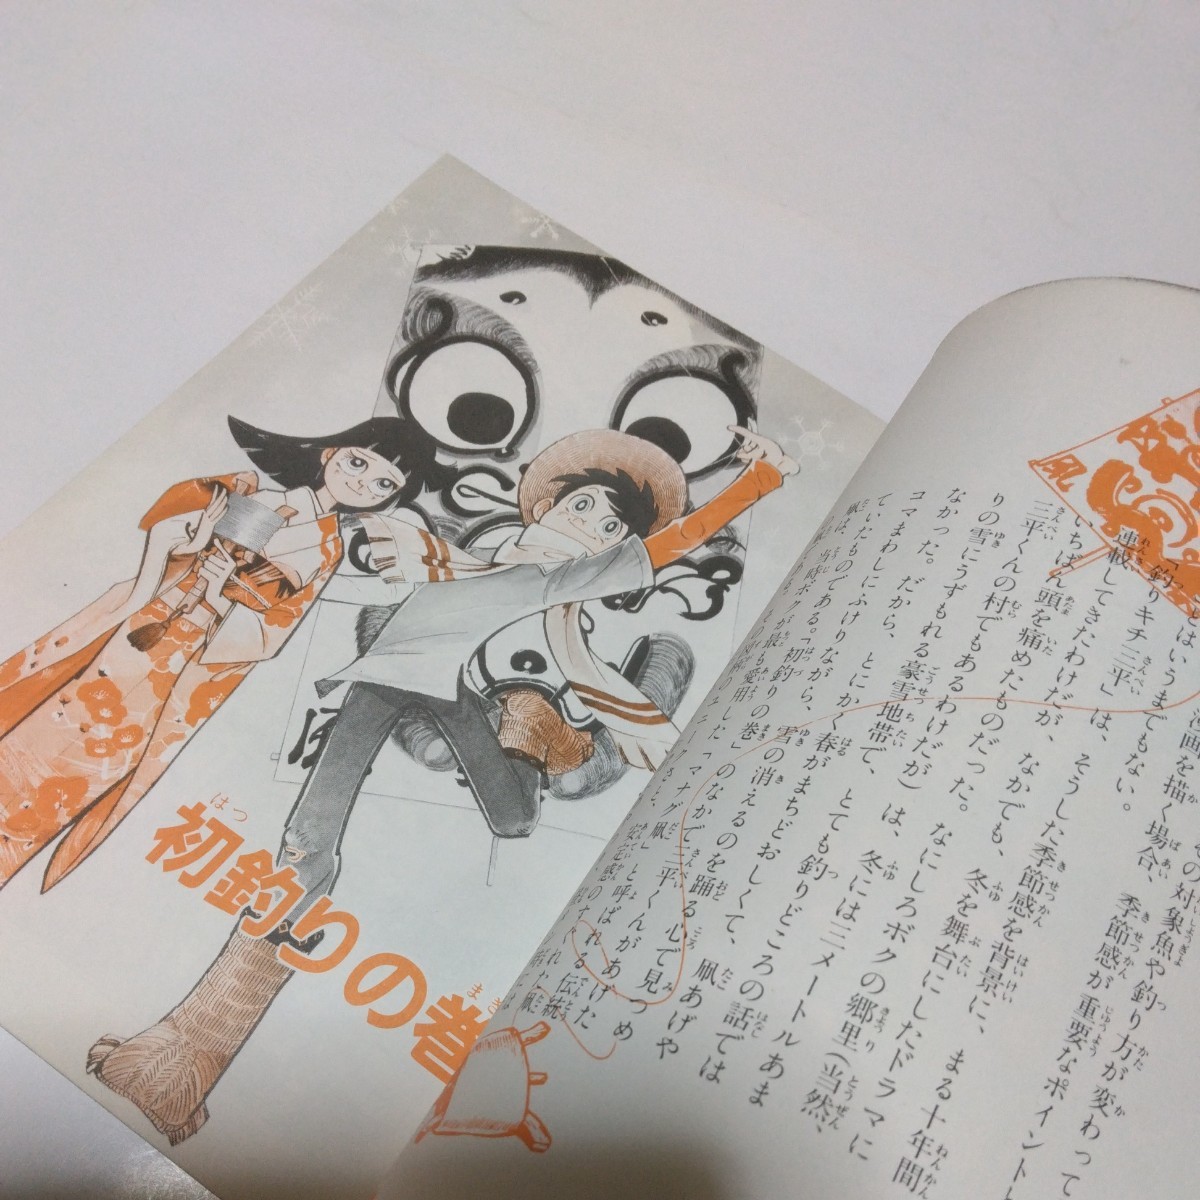 初釣りの巻
はつ
まき
凧
画を描く場合、季節感が重要なポイント
はいうまでもない。
「釣りキチ三平」は、そうした季節感を背景に、まる十年間
連載してきたわけだが、なかでも、冬を舞台にしたドラマに
いちばん頭を痛めたものだった。なにしろボクの郷里(当然、
三平くんの村でもあるわけだが)は、冬には三メートルあま
りの雪にうずもれる豪雪地帯で、とても釣りどころの話では
なかった。だから、とにかく春がまちどおしくて、凧あげや
コマまわしにふけりながら、雪の消えるのを踊る心で見つめ
ていたものである。「初釣りの巻」のなかで三平くんがあげた
凧は、当時ボクが最も愛用した「マナグ凧」と呼ばれる伝統